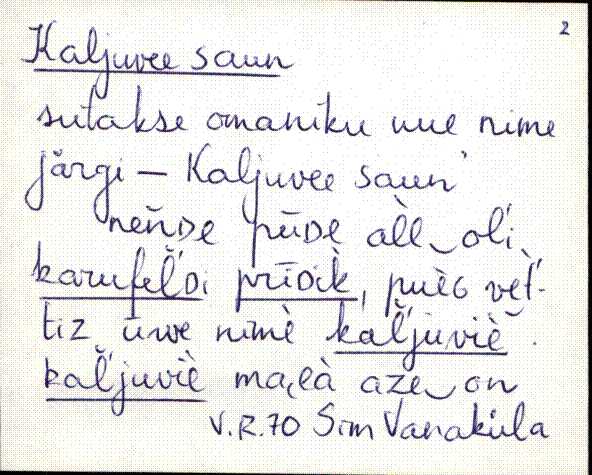 2
Kaljuvee saun
sutakse omaniku uue nime
järgi — Kaljuvee saun
neńdᴇ pūdᴇ àll oĺi
karufeĺ̀di prīdik, puès vèt-
tiz ūwe nimè kaĺjuviè.
kaĺjuviè maea aze on
V.R.70 Sim Vanaküla